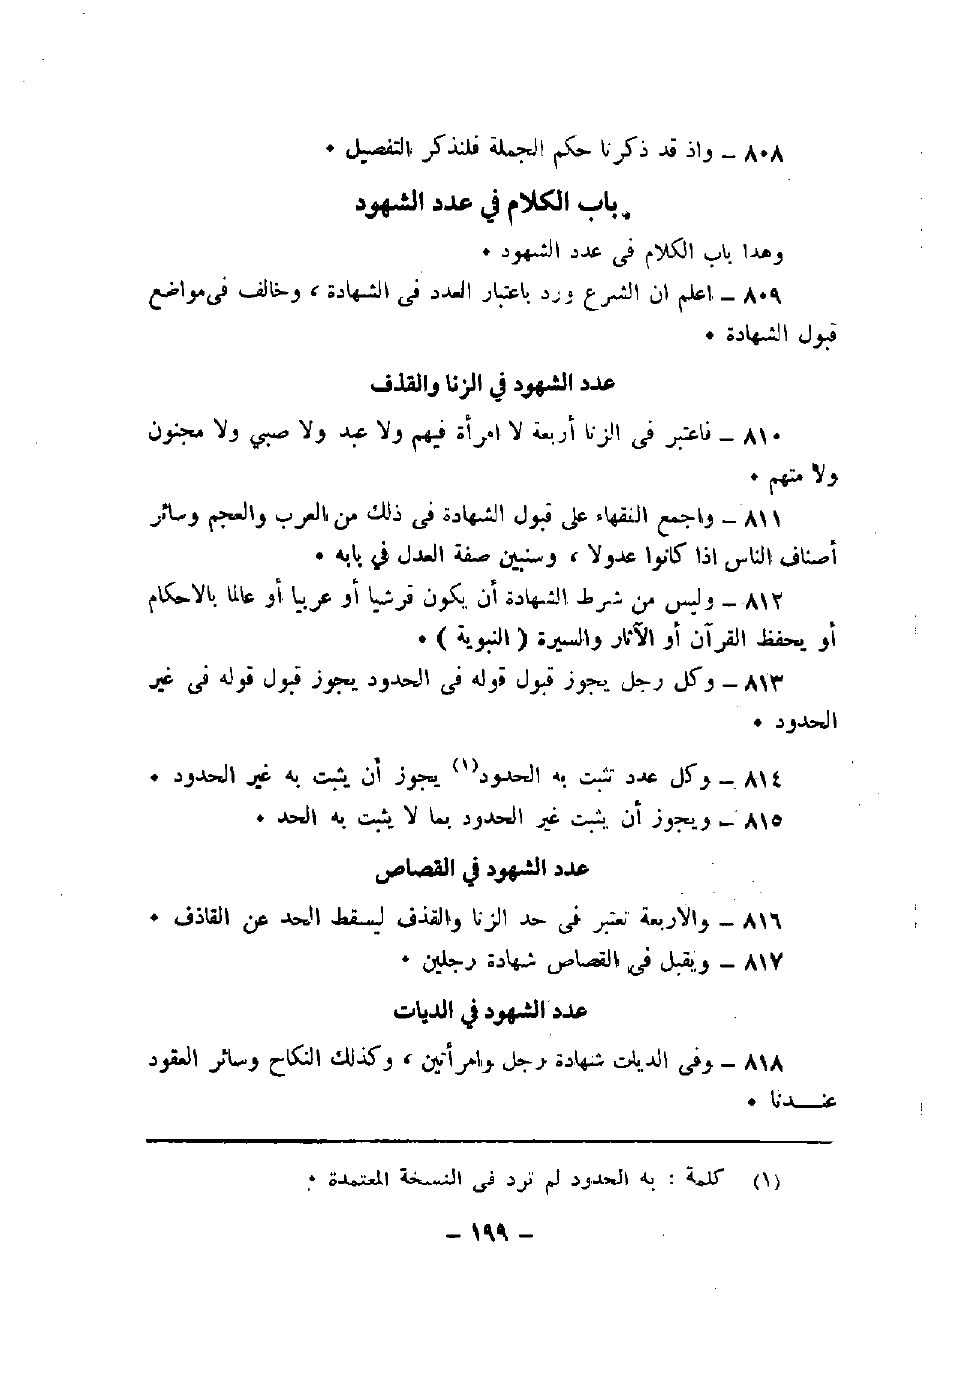 ٨٠٨ ـ واذ قد ذكرنا حكم الجملة فلنذكر التفصيل ٠
باب الكلام في عدد الشهود
وهذا باب الكلام فى عدد الشهود ٠
٨٠٩ ـ اعلم ان الشرع ورد باعتبار العدد فى الشهادة ، وخالف فى مواضع
قبول الشهادة ٠
عدد الشهود في الزنا والقذف
٨١٠ ـ فاعتبر فى الزنا أربعة لا امرأة فيهم ولا عبد ولا صبي ولا مجنون
ولا متهم ٠
٨١١ ـ واجمع الفقهاء على قبول الشهادة فى ذلك من العرب والعجم وسائر
أصناف الناس اذا كانوا عدولا ، وسنبين صفة العدل في بابه ٠
٨١٢ ـ وليس من شرط الشهادة أن يكون قرشيا أو عربيا أو عالما بالاحكام
أو يحفظ القرآن أو الآثار والسيرة ( النبوية ) ٠
٨١٣ ـ وكل رجل يجوز قبول قوله فى الحدود يجوز قبول قوله فى غير
الحدود ٠
٨١٤ ـ وكل عدد تثبت به الحدود(١) يجوز أن يثبت به غير الحدود ٠
٨١٥ ـ ويجوز أن يثبت غير الحدود بما لا يثبت به الحد ٠
عدد الشهود في القصاص
٨١٦ ـ والاربعة تعتبر فى حد الزنا والقذف ليسقط الحد عن القاذف ٠
٨١٧ ـ ويقبل فى القصاص شهادة رجلين ٠
عدد الشهود في الديات
٨١٨ ـ وفى الديات شهادة رجل وامرأتين ، وكذلك النكاح وسائر العقود
عنـــدنا ٠
(١) كلمة : به الحدود لم ترد فى النسخة المعتمدة ٠
ـ ١٩٩ ـ